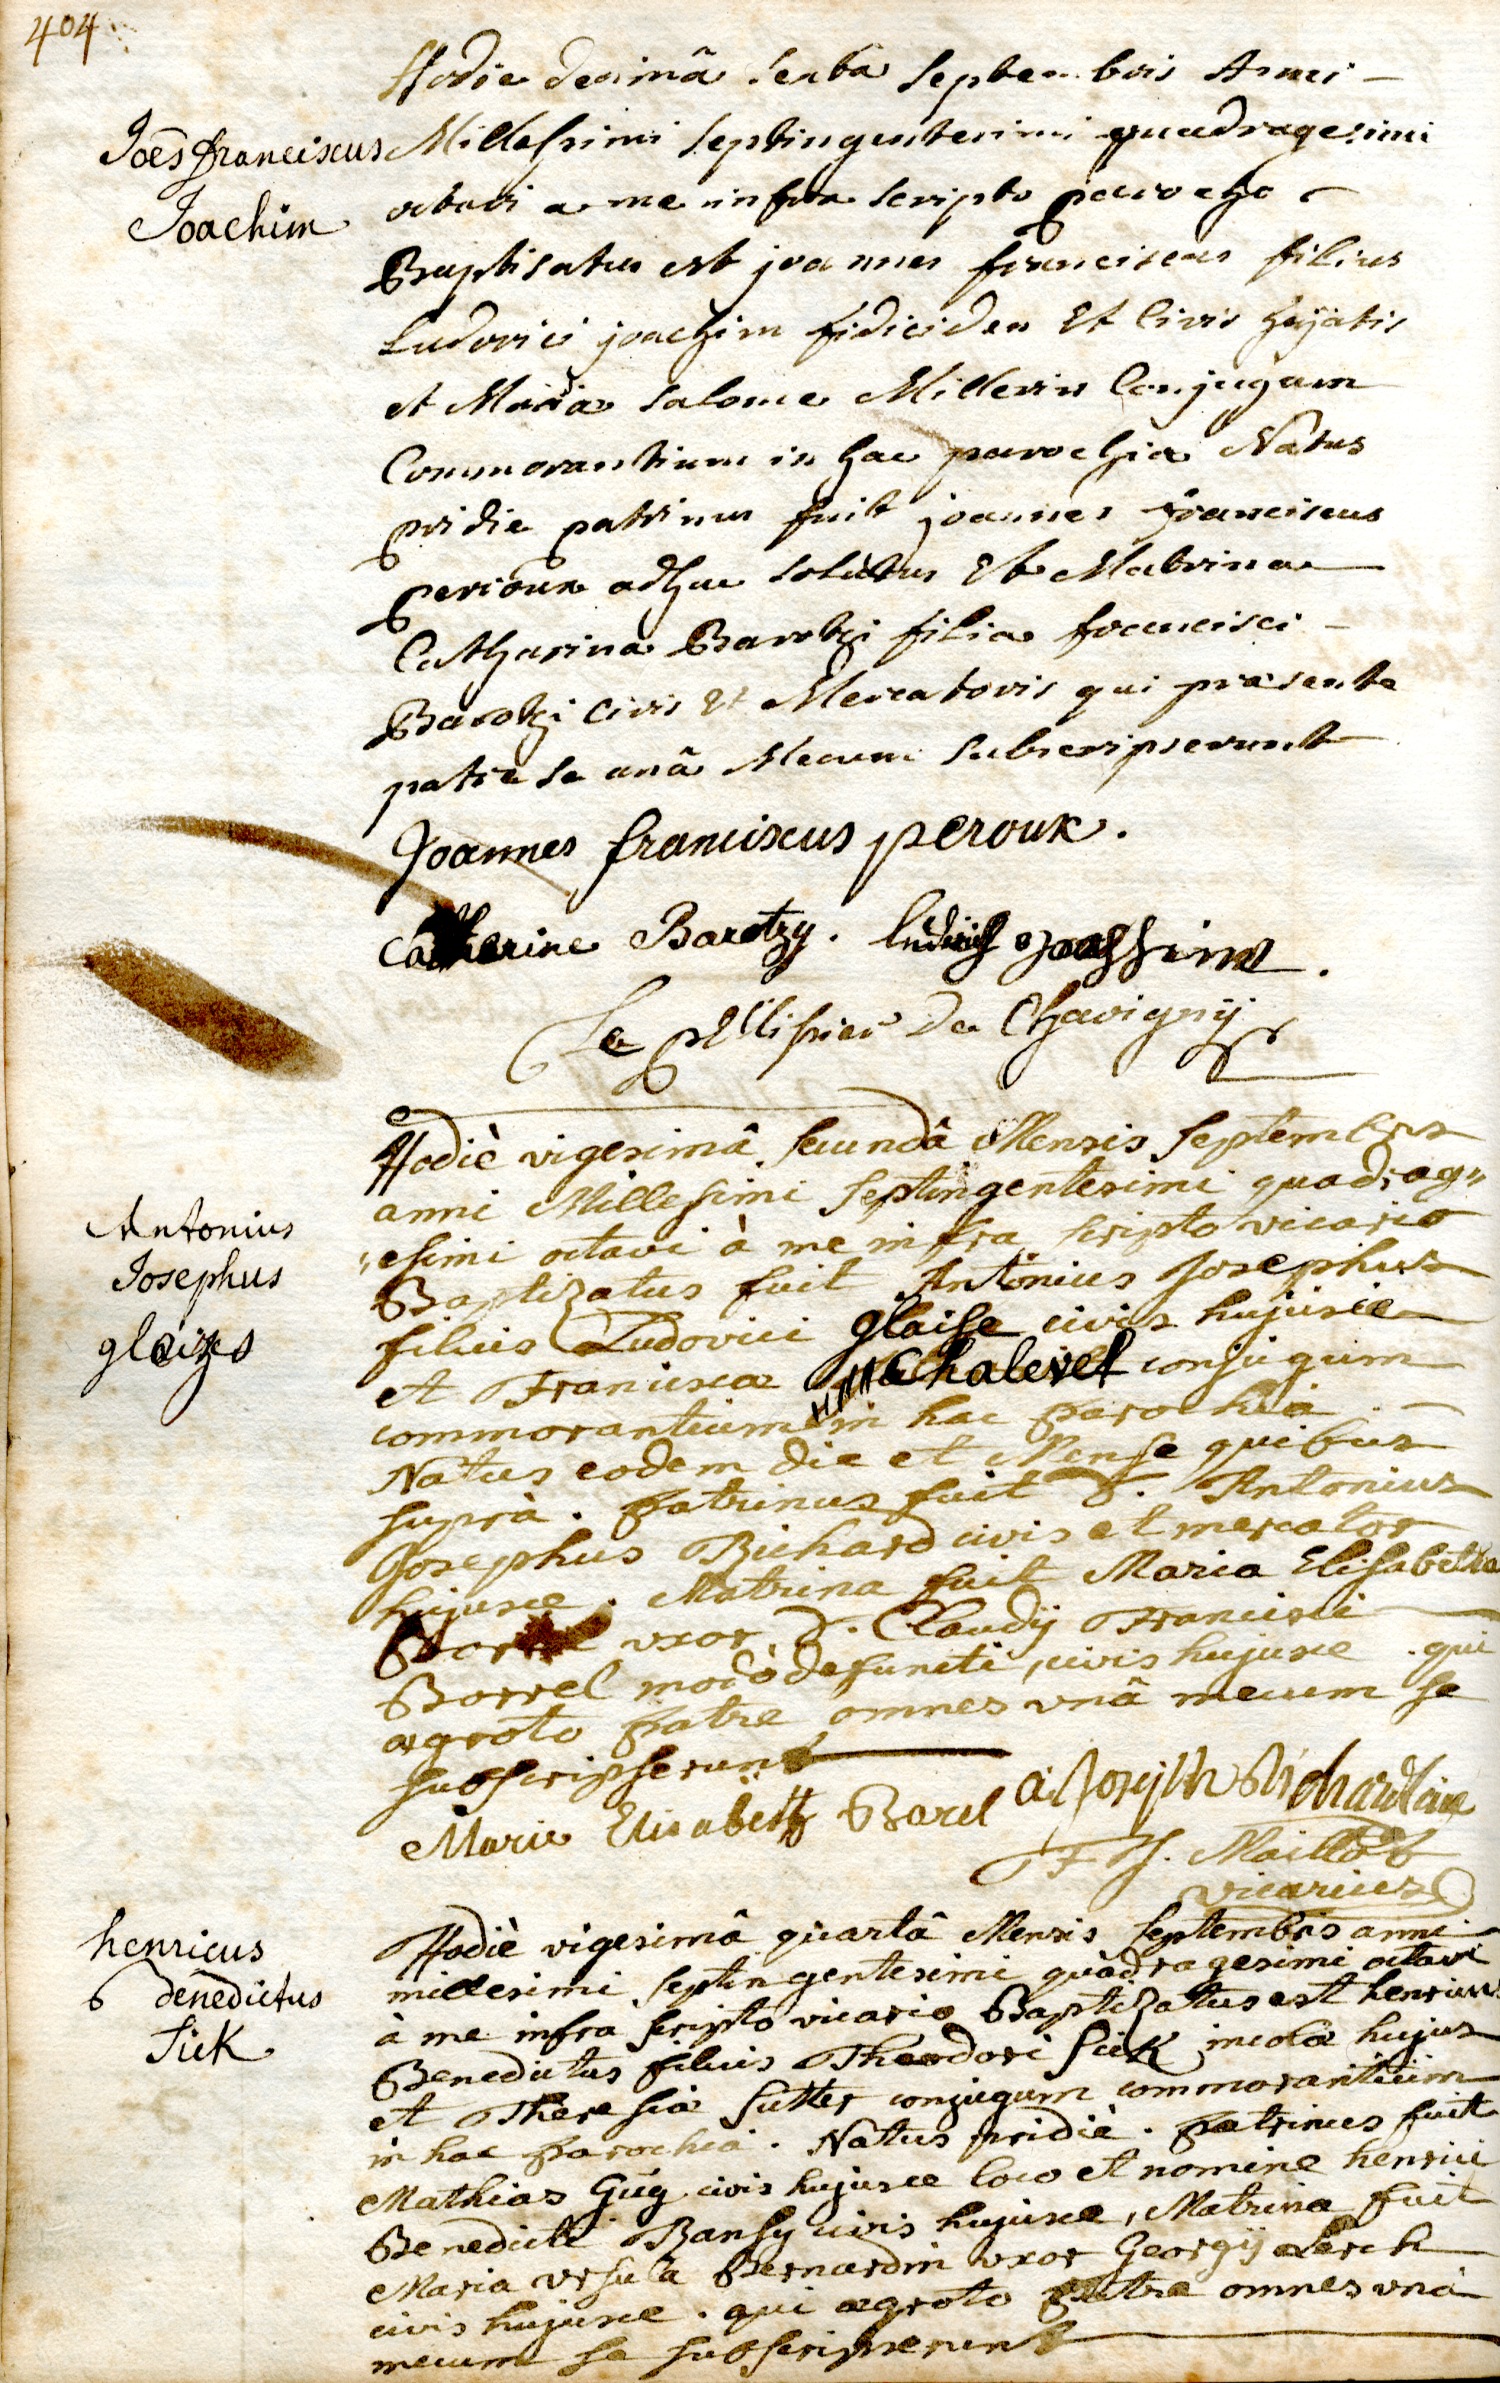 404
Hodie decimâ sexta septembris Anni
Joēs franciscus
Joachim
Millesimi septingentesimi quadragesimi
octavi a me infra scripto parocho
Baptisatus est joannes franciscus filius
Ludovici joachim fidiciden Et Civis hujatis
et Maria salome Millerin Conjugum
Commorantium in hac parochia Natus
pridie patrinus fuit joannes franciscus
perioux adhuc solutus Et Matrina
Catharina Barotzi filia francisci
Barotzi Civis Et Mercatoris qui præsente
patre se unâ Mecum subscripserunt
Joannes franciscus peroux.
Catherine Baretzy. ludwich joachim.
Le pellissier de Chavignÿ
Antonius
Josephus
glaizes
Hodiè vigesimâ secundâ Mensis septembris
anni Millesimi septingentesimi quadrag„
„esimi octavi à me infra scripto vicario
Baptizatus fuit Antonius Josephus
filius Ludovici glaise civis hujusce
et Francisca Chalevet conjugum
commorantium in hac parochiâ.
Natus eodem die et Mense quibus
suprà. patrinus fuit d. Antonius
Josephus Richard civis et mercator
hujusce. Matrina fuit Maria Elisabetha
uxor d. Claudÿ Francisci
Borrel modò defuncti, civis hujusce. qui
ægroto patre omnes vnâ mecum se
subscripserunt
Marie Elisabeth Barel a: Joseph Richard
F H. Maillot
vicarius
henricus
benedictus
Sick
Hodiè vigesimâ quartâ Mensis septembris anni
millesimi septingentesimi quadragesimi octavi
à me infra scripto vicario Baptizatus est henricus
Benedictus filius Theodori Sick incolæ hujus
et Theresia Sutter conjugum commorantium
in hac parochiâ. Natus pridiè. patrinus fuit
Mathias Gug civis hujusce loco et nomine henrici
Benedicti Bansy civis hujusce, Matrina fuit
Maria Vrsula Bernardin vxor Georgÿ Lerch
civis hujusce. qui ægroto patre omnes vnâ
mecum se subscripserunt